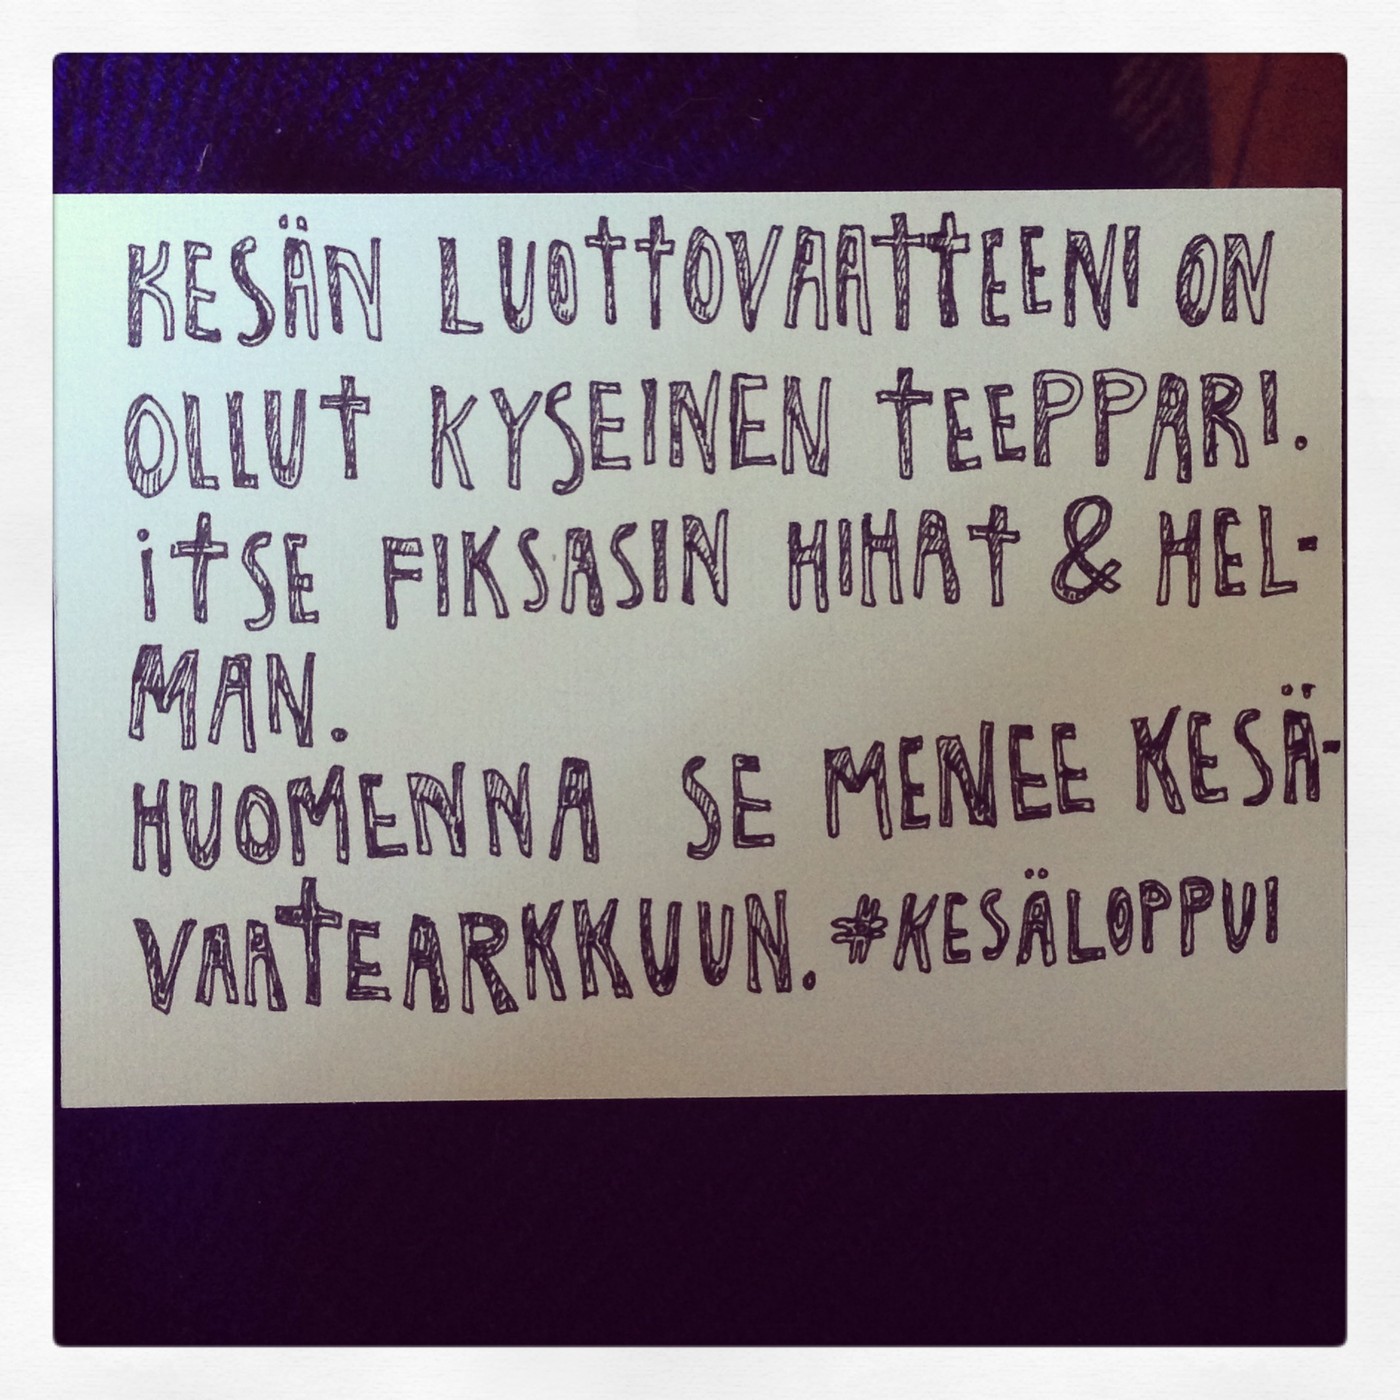 KESÄN LUOTTOVAATTEENI ON
OLLUT KYSEINEN TEEPPARI.
ITSE FIKSASIN HIHAT & HEL-
MAN.
HUOMENNA SE MENEE KESÄ-
VAATEARKKUUN. #KESÄLOPPUI